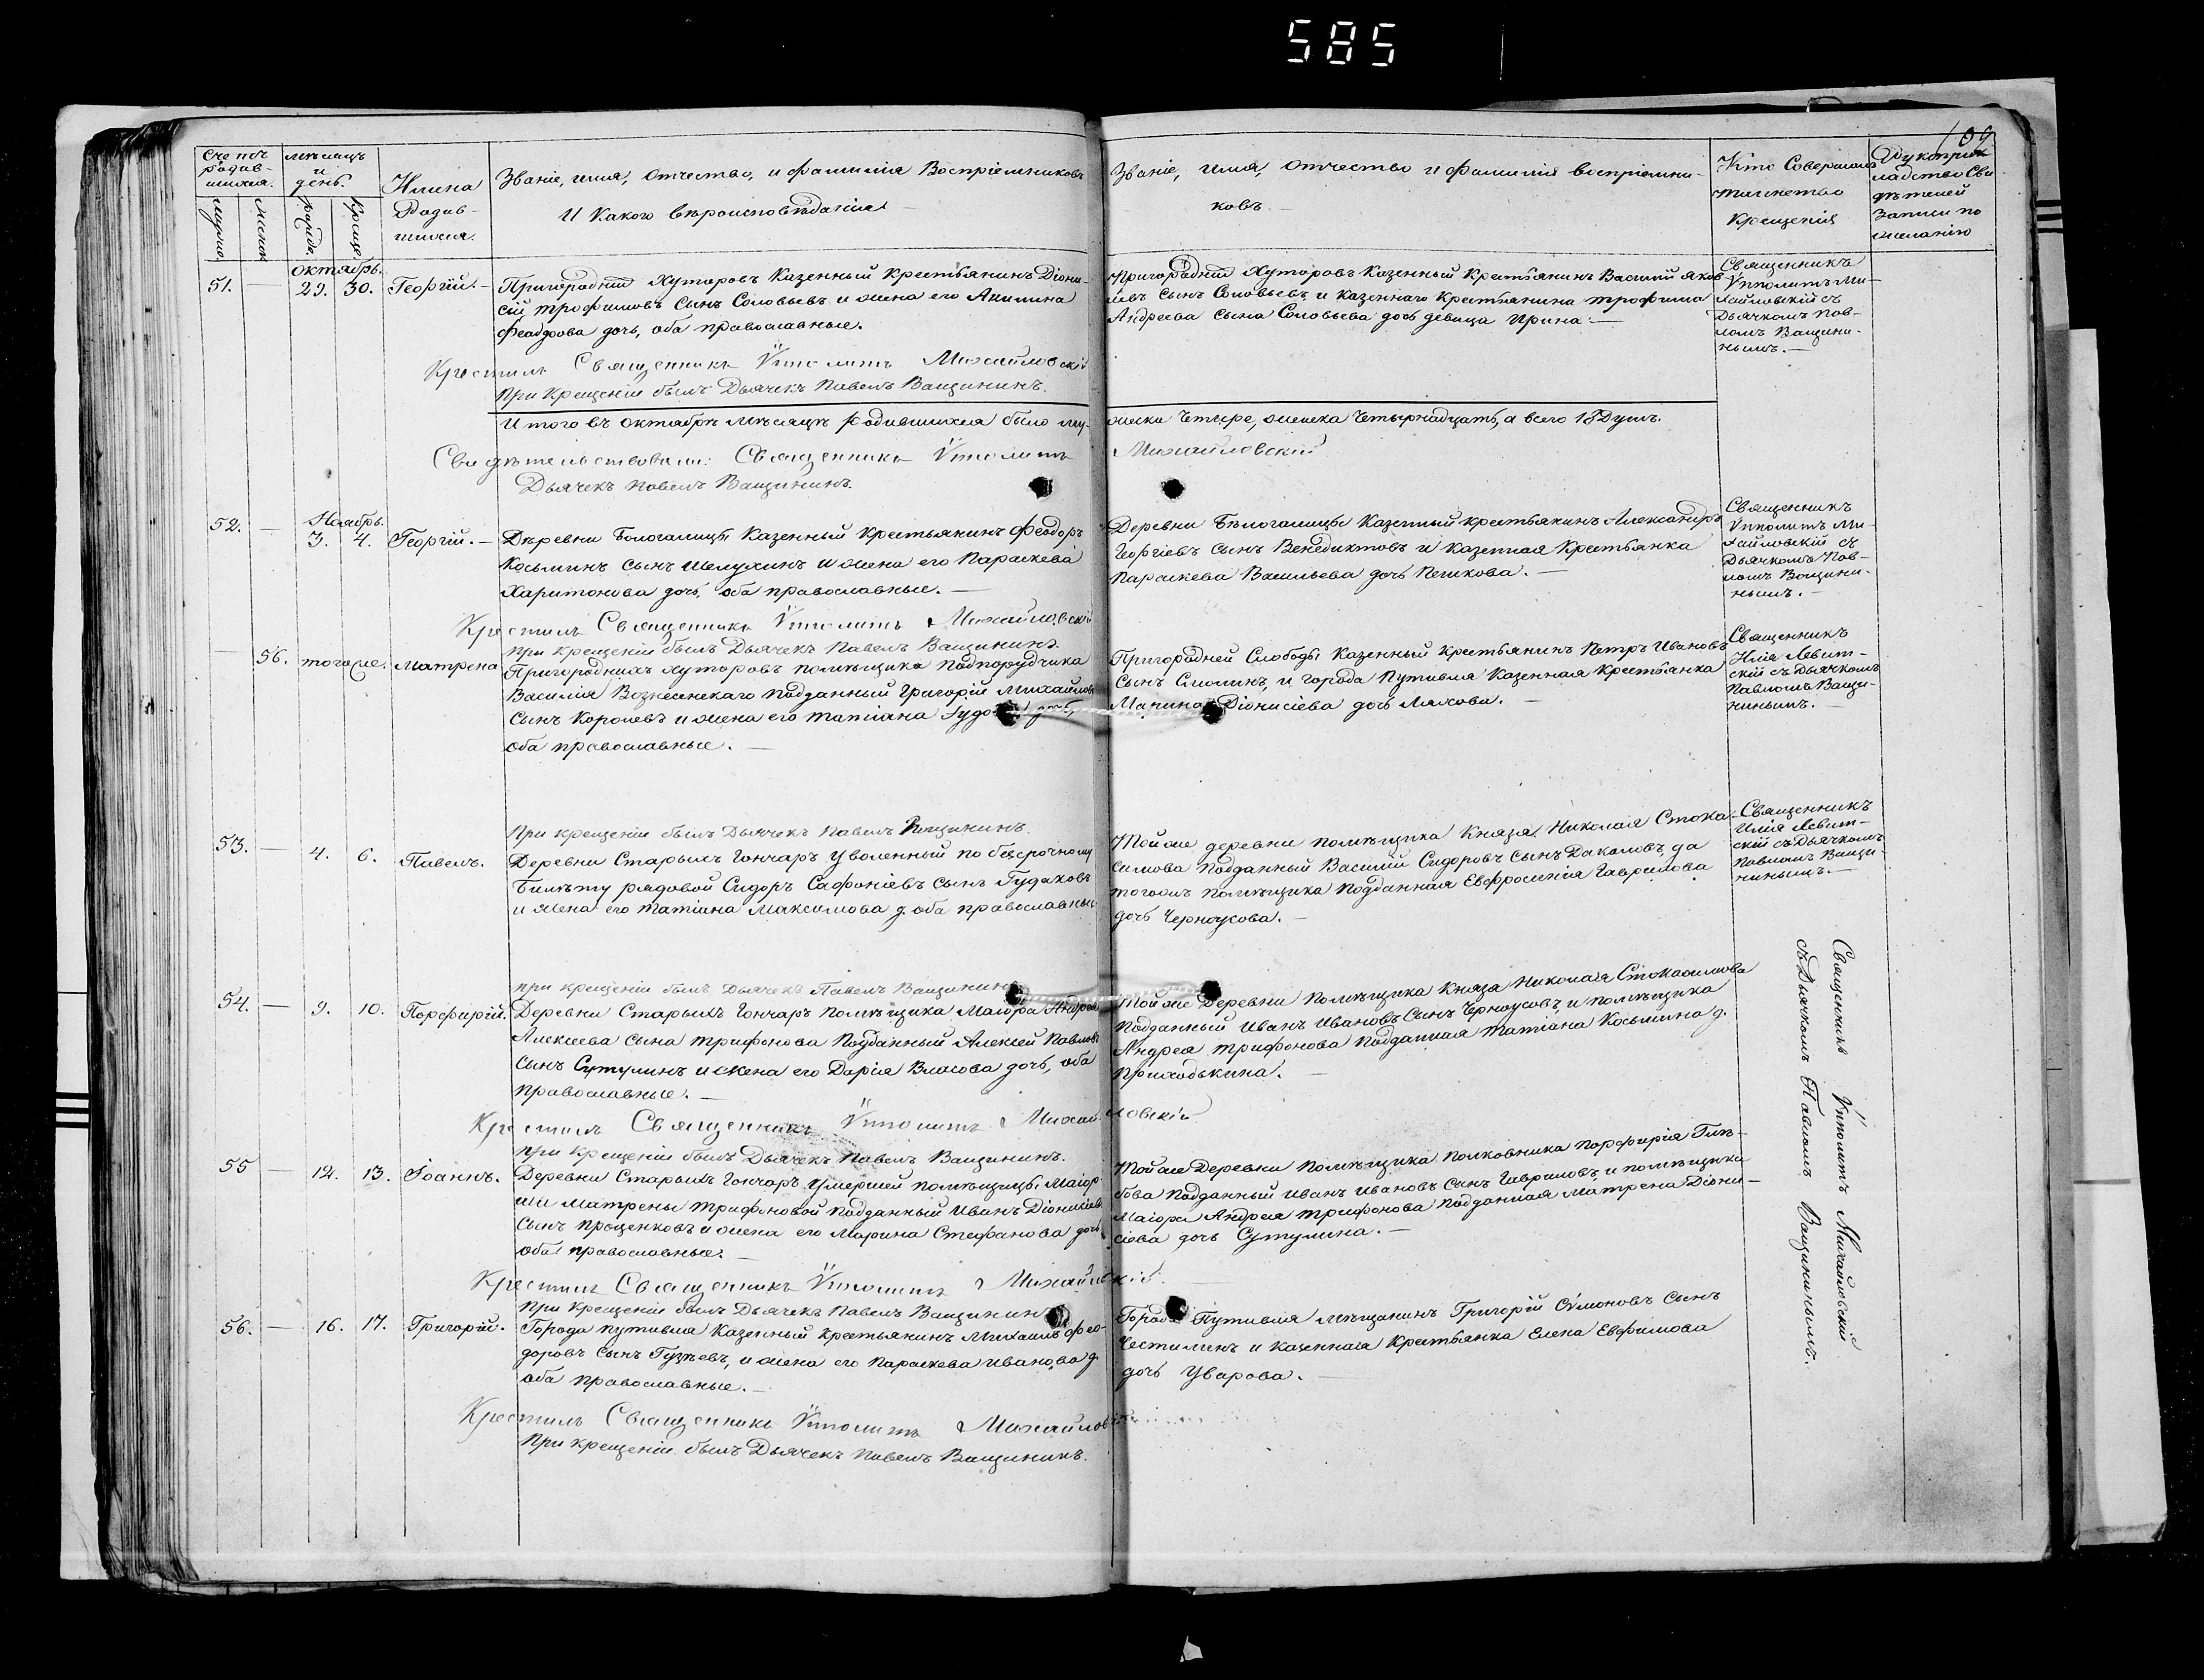 585
109
Счетъ родив-
шихся.
мѣсяцъ
и
день.
мужск.
женск.
рожде.
креще.
Имена
Родив-
шихся.
Званіе, имя, отчество, и фамилія Воспріемниковъ
и Какого вѣроисповѣданія
Званіе, имя, отчество и фамилія воспріемни-
ковъ
Кто Совершалъ
таинство
Крещенія
Рукоприк
ладство Сви-
дѣтелей
записи по
желанію
октябрь.
51. — 29. 30. Георгій. —
Пригородній Хуторовъ Казенный Крестьянинъ Діони-
сій трофимовъ Сынъ Соловьевъ и жена его Акилина
Феодорова дочь, оба православные.
Крестилъ Священникъ Ѵпполитъ Михайловскій
При Крещеніи былъ Дьячекъ Павелъ Ващининъ.
Пригородній Хуторовъ Казенный Крестьянинъ Василій яков
левъ Сынъ Соловьевъ, и Казеннаго Крестьянина трофима
Андреева Сына Соловьева дочь девица Ирина. —
Священникъ
Ѵпполитъ Ми-
хайловскій съ
Дьячкомъ Пав-
ломъ Ващини-
нымъ. —
Итого въ октябрѣ мѣсяцѣ родившихся было му-
жеска Четыре, женска Четырнадцать, а всего 18 Душъ.
Свидѣтельствовали: Священникъ Ѵпполитъ Михайловскій
Дьячекъ Павелъ Ващининъ.
Ноябрь.
52. — 3. 4. Георгій. —
Деревни Бологалицы Казенный Крестьянинъ Феодоръ
Косьминъ Сынъ Шелухинъ и жена его Параскева
Харитонова дочь, оба православные. —
Крестилъ Священникъ Ѵпполитъ Михайловскій
при крещеніи былъ Дьячекъ Павелъ Ващининъ.
Деревни Бѣлогалицы Казенный крестьянинъ Александръ
Георгіевъ Сынъ Венедиктовъ и Казенная Крестьянка
Параскева Васильева дочь Пешкова. —
Священникъ
Ѵпполитъ Ми-
хайловскій съ
Дьячкомъ Пав-
ломъ Ващини-
нымъ. —
— 56. тогоже. Матрена
Пригородныхъ хуторовъ помѣщика Подпорудчика
Василія Вознесенскаго подданный Григорій Михайловъ
Сынъ Королевъ и жена его татіана дочь,
оба православные. —
Пригородней Слободы Казенный Крестьянинъ Петръ Ивановъ
Сынъ Смолинъ, и города Путивля Казенная Крестьянка
Марина Діонисіева дочь Ляхова. —
Священникъ
Илія Левит-
скій съ Дьячкомъ
Павломъ Ващи-
нинымъ. —
При крещеніи былъ Дьячекъ Павелъ Ващининъ.
53. — 4. 6. Павелъ.
Деревни Старыхъ Гончаръ Уволенный по безсрочному
Билѣту рядовой Сидоръ Сафоніевъ Сынъ Гудаковъ
и жена его татіана Максимова д. оба православные
Тойже деревни помѣщика Князя Николая Стока-
симова подданный Василій Сидоровъ Сынъ Дакаловъ, да
тогожъ помѣщика подданная Евфросинія Гаврилова
дочь Черноусова. —
Священникъ
Илія Левит-
скій съ Дьячкомъ
Павломъ Ващи-
нинымъ. —
при крещеніи былъ Дьячекъ Павелъ Ващининъ
54. — 9. 10. Порфирій.
Деревни Старыхъ Гончаръ помѣщика Маіора Андрея
Алексеева Сына трифонова Подданный Алексей Павловъ
Сынъ Сутулинъ и жена его Дарія Власова дочь, оба
православные. —
Крестилъ Священникъ Ѵпполитъ Михайловскій
при Крещеніи былъ Дьячекъ Павелъ Ващининъ.
Тойже Деревни помѣщика Князя Николая Стокасимова
подданный Иванъ Ивановъ Сынъ Черноусовъ, и помѣщика
Андрея трифонова подданная татіана Косьмина д.
Приходькина. —
55 — 12. 13. Іоаннъ.
Деревни Старыхъ Гончаръ умершей помѣщицы Маіор
ши Матрены Трифоновой подданный Иванъ Діонисіевъ
Сынъ Проценковъ и жена его Марина Стефанова дочь
оба православные. —
Крестилъ Священникъ Ѵпполитъ Михайловскій.
Тойже Деревни помѣщика полковника порфирія Глѣ-
бова подданный Иванъ Ивановъ Сынъ Гавриловъ, и помѣщика
Маіора Андрея трифонова подданная Матрена Діони-
сіева дочь Сутулина. —
При Крещеніи былъ Дьячекъ Павелъ Ващининъ
56. — 16. 17. Григорій.
Города путивля Казенный Крестьянинъ Михаилъ Фео-
доровъ Сынъ Гузѣевъ, и жена его Параскева Иванова д.
оба православные. —
Крестилъ Священникъ Ѵпполитъ Михайлов
При крещеніи былъ Дьячекъ Павелъ Ващининъ.
Города Путивля мѣщанинъ Григорій Сѵмоновъ Сынъ
Честилинъ и Казенная Крестьянка Елена Евфимова
дочь Уварова. —
Священникъ Ѵпполитъ Михайловскій
съ Дьячкомъ Павломъ Ващининымъ.